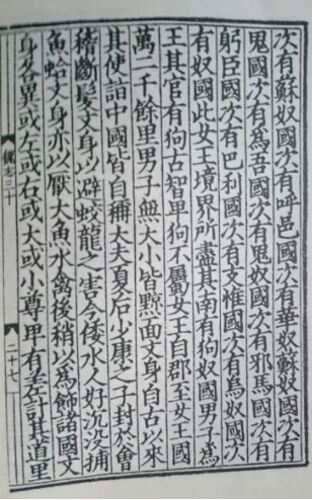 次有蘇奴國次有呼邑國次有華奴蘇奴國次有
鬼國次有為吾國次有鬼奴國次有邪馬國次有
躬臣國次有巴利國次有支惟國次有烏奴國次
有奴國此女王境界所盡其南有狗奴國男子為
王其官有狗古智卑狗不屬女王自郡至女王國
萬二千餘里男子無大小皆黥面文身自古以來
其使詣中國皆自稱大夫夏后少康之子封於會
稽斷髮文身以避蛟龍之害今倭水人好沉没捕
魚蛤文身亦以厭大魚水禽後稍以為飾諸國文
身各異或左或右或大或小尊卑有差計其道里
魏志三十
二十七